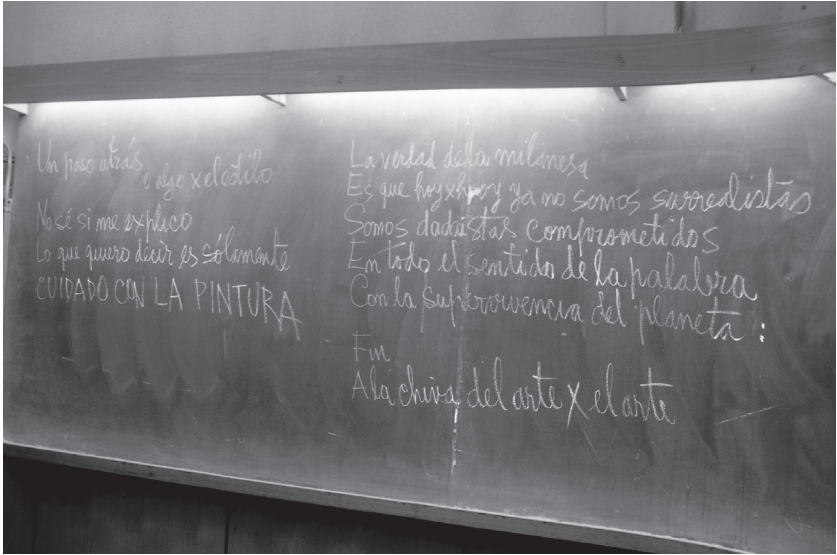 Un paso atrás
o algo x el estilo
No sé si me explico
Lo que quiero decir es sólamente
CUIDADO CON LA PINTURA
La verdad de la milanesa
Es que hoy x hoy ya no somos surrealistas
Somos dadaístas comprometidos
En todo el sentido de la palabra
Con la supervivencia del planeta:
Fin
A la chiva del arte x el arte